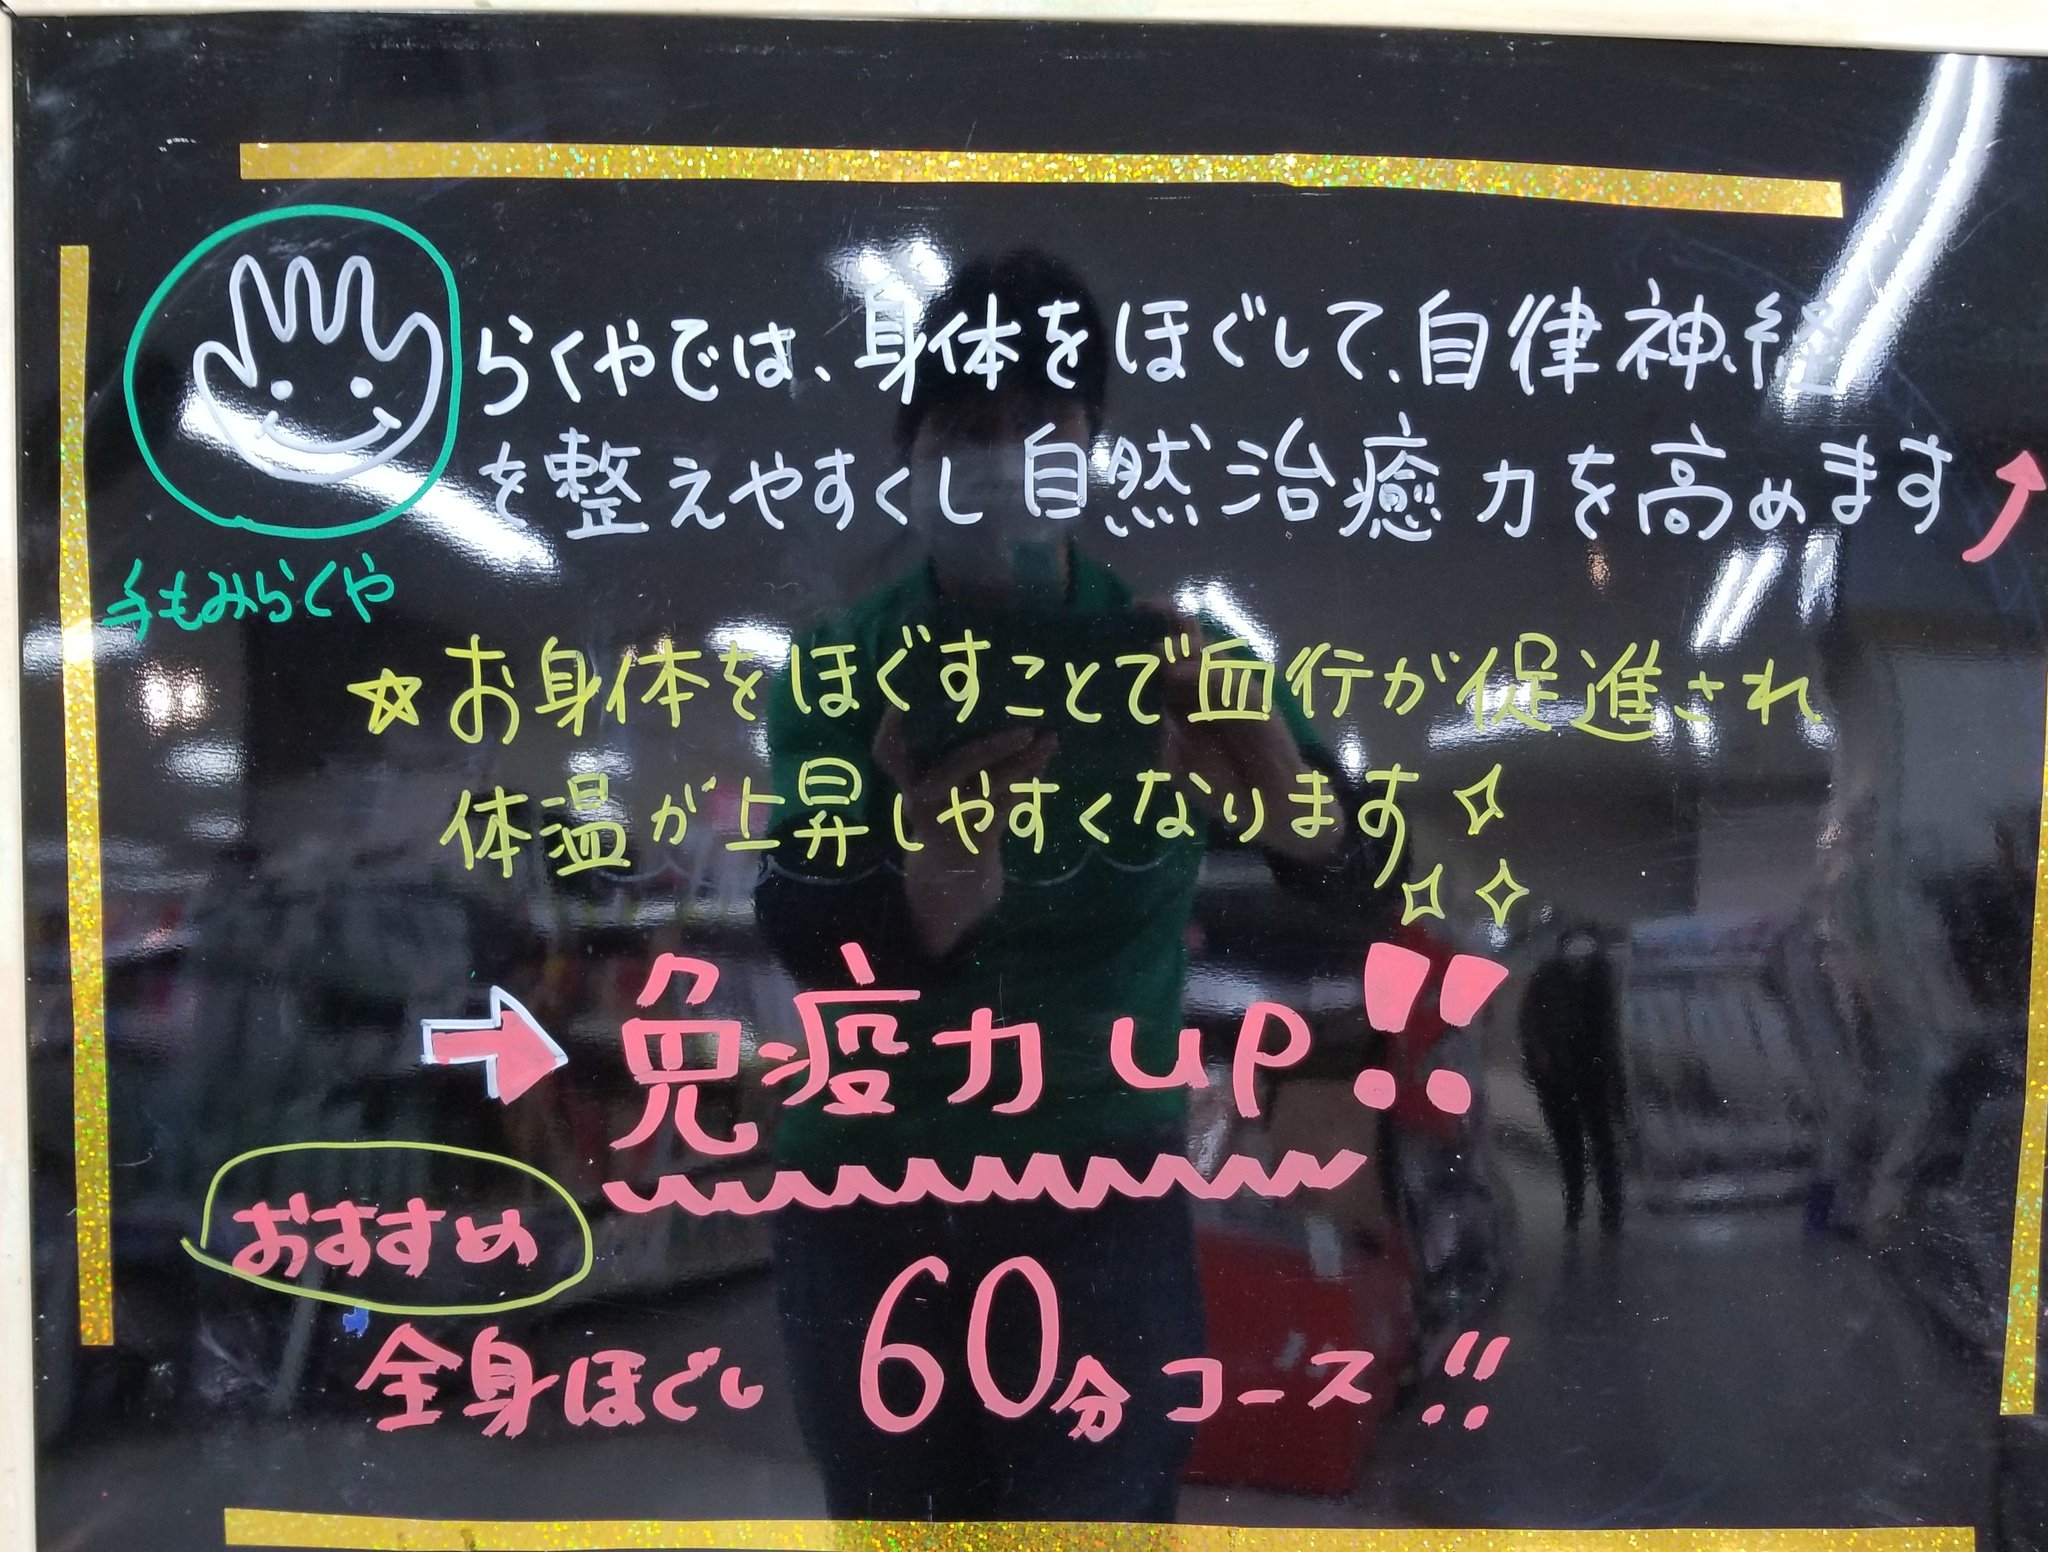 らくやでは、身体をほぐして、自律神経
を整えやすくし自然治癒力を高めます
手もみらくや
☆お身体をほぐすことで血行が促進され
体温が上昇しやすくなります
免疫力up!!
おすすめ
全身ほぐし 60分コース!!